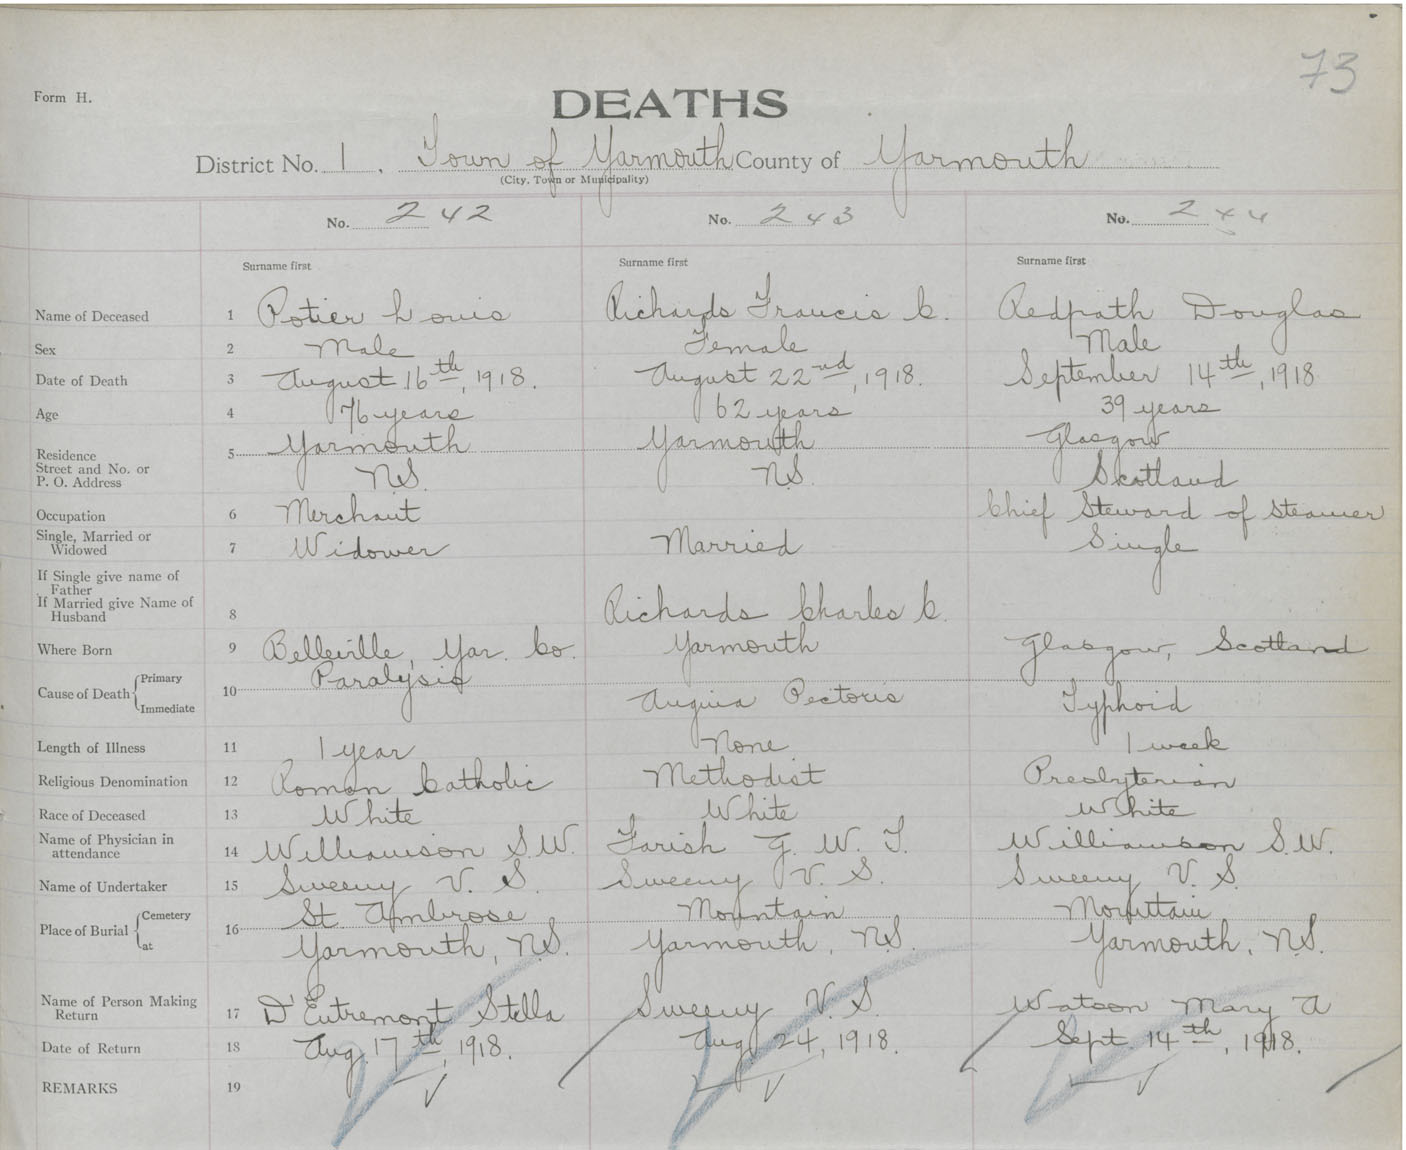 73
Form H.
DEATHS
District No. 1, Town of Yarmouth County of Yarmouth
(City, Town or Municipality)
No. 242 No. 243 No. 244
Surname first Surname first Surname first
Name of Deceased 1 Potier Louis Richards Francis C. Redpath Douglas
Sex 2 Male Female Male
Date of Death 3 August 16th, 1918. August 22nd, 1918. September 14th, 1918
Age 4 76 years 62 years 39 years
Residence 5 Yarmouth Yarmouth Glasgow
Street and No. or
P. O. Address N.S. N.S. Scotland
Occupation 6 Merchant Chief Steward of Steamer
Single, Married or
Widowed 7 Widower Married Single
If Single give name of
Father
If Married give Name of
Husband 8 Richards Charles C.
Where Born 9 Belleville, Yar. Co. Yarmouth Glasgow, Scotland
Cause of Death { Primary 10 Paralysis
Immediate Angina Pectoris Typhoid
Length of Illness 11 1 year None 1 week
Religious Denomination 12 Roman Catholic Methodist Presbyterian
Race of Deceased 13 White White White
Name of Physician in
attendance 14 Williamson S.W. Farish G. W. T. Williamson S.W.
Name of Undertaker 15 Sweeny V. S. Sweeny V. S. Sweeny V. S.
Place of Burial { Cemetery 16 St. Ambrose Mountain Mountain
at Yarmouth, N.S. Yarmouth, N.S. Yarmouth, N.S.
Name of Person Making
Return 17 D'Entremont Stella Sweeny V. S. Watson Mary A
Date of Return 18 Aug. 17th, 1918. Aug. 24, 1918. Sept. 14th, 1918.
REMARKS 19